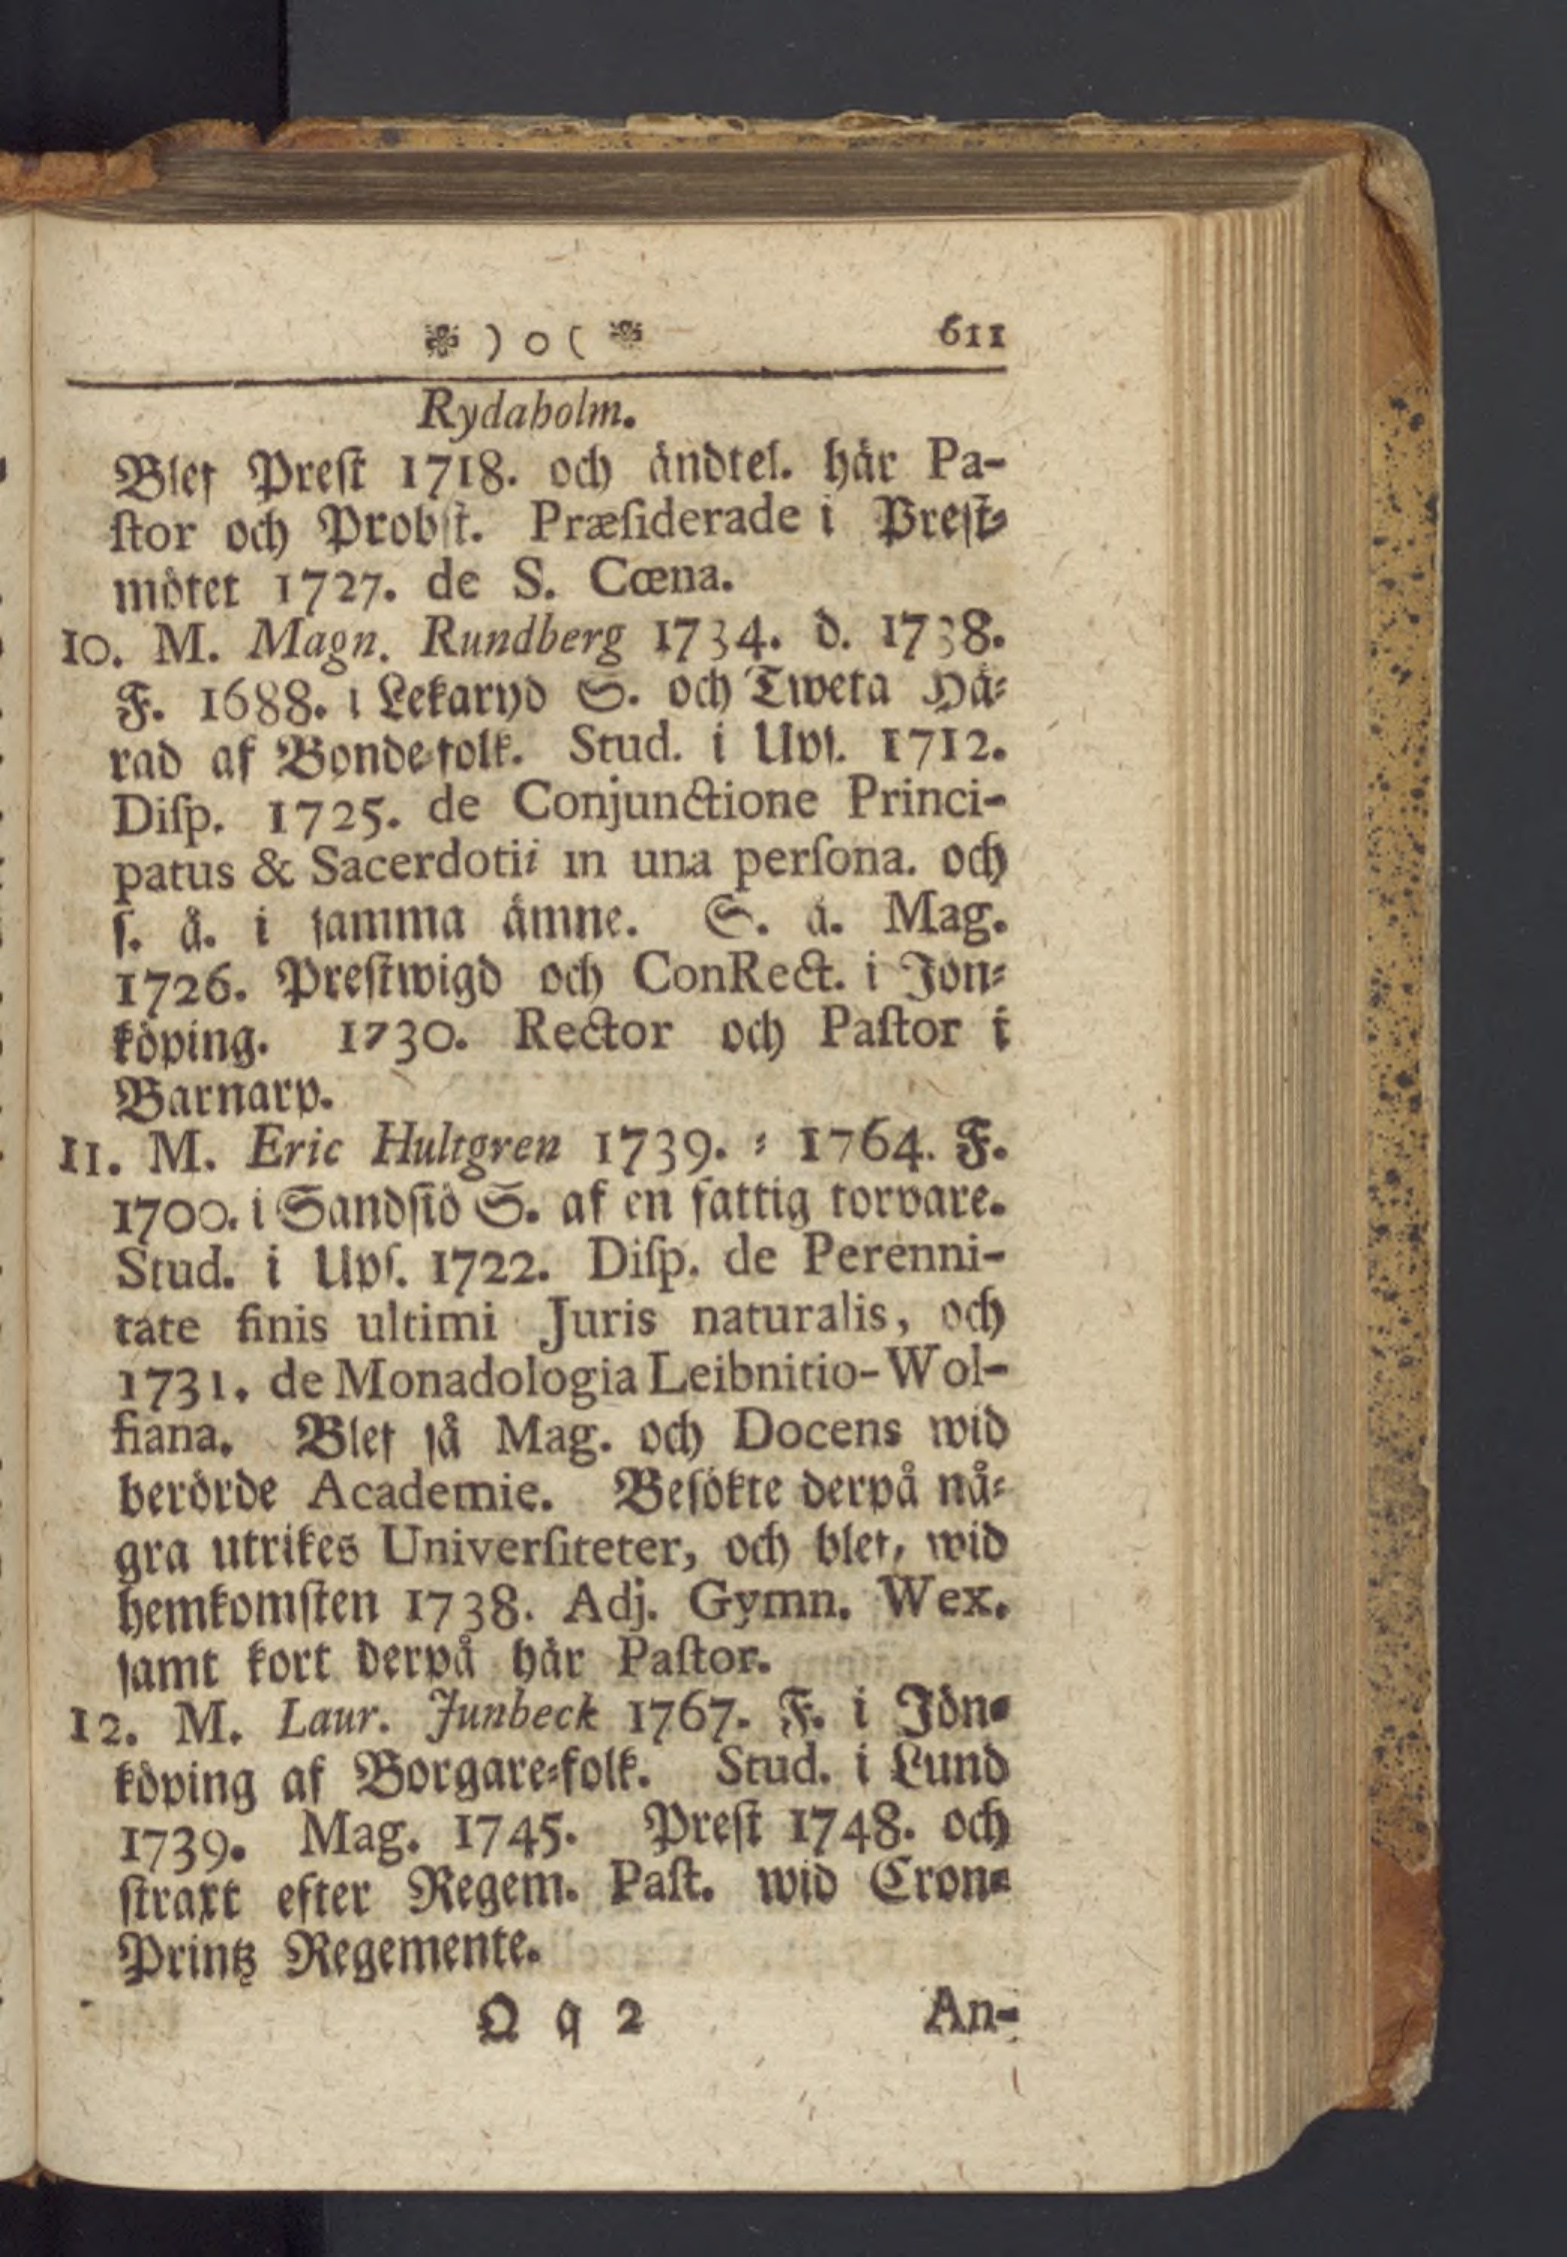 ❃ ) o ( ❃ 611
Rydaholm.
Blef Prest 1718. och ändtel. här Pa-
stor och Probst. Præsiderade i Prest-
mötet 1727. de S. Cœna.
10. M. Magn. Rundberg 1734. d. 1738.
F. 1688. i Lekaryd S. och Tweta Hä-
rad af Bonde-folk. Stud. i Ups. 1712.
Disp. 1725. de Conjunctione Princi-
patus & Sacerdotii in una persona. och
s. å. i samma ämne. S. å. Mag.
1726. Prestwigd och ConRect. i Jön-
köping. 1730. Rector och Pastor i
Barnarp.
11. M. Eric Hultgren 1739. - 1764. F.
1700. i Sandsiö S. af en fattig torpare.
Stud. i Ups. 1722. Disp. de Perenni-
tate finis ultimi Juris naturalis, och
1731. de Monadologia Leibnitio-Wol-
fiana. Blef så Mag. och Docens wid
berörde Academie. Besökte derpå nå-
gra utrikes Universiteter, och blef, wid
hemkomsten 1738. Adj. Gymn. Wex.
samt kort derpå här Pastor.
12. M. Laur. Junbeck 1767. F. i Jön-
köping af Borgare-folk. Stud. i Lund
1739. Mag. 1745. Prest 1748. och
straxt efter Regem. Past. wid Cron-
Printz Regemente.
Q q 2 An-